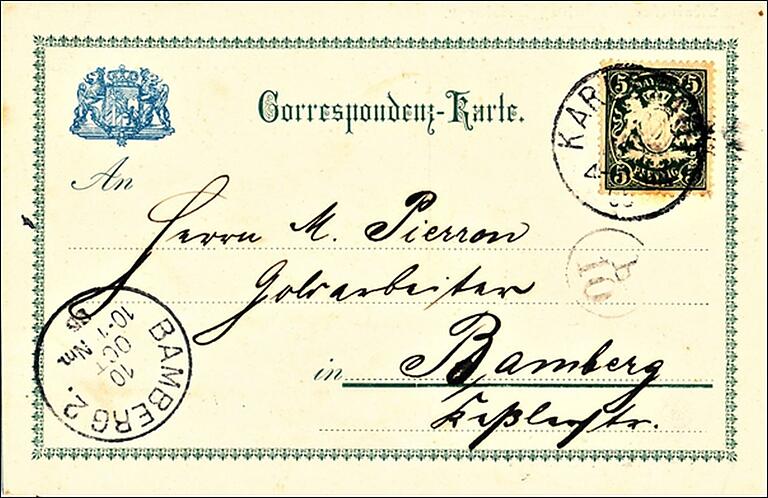 Correspondenz-Karte.
5 5
5 5
KAR
4-
An
Herrn M. Pierron
Goldarbeiter
in Bamberg
Keßlerstr.
BAMBERG 2.
10
OCT
10-11 Nm.